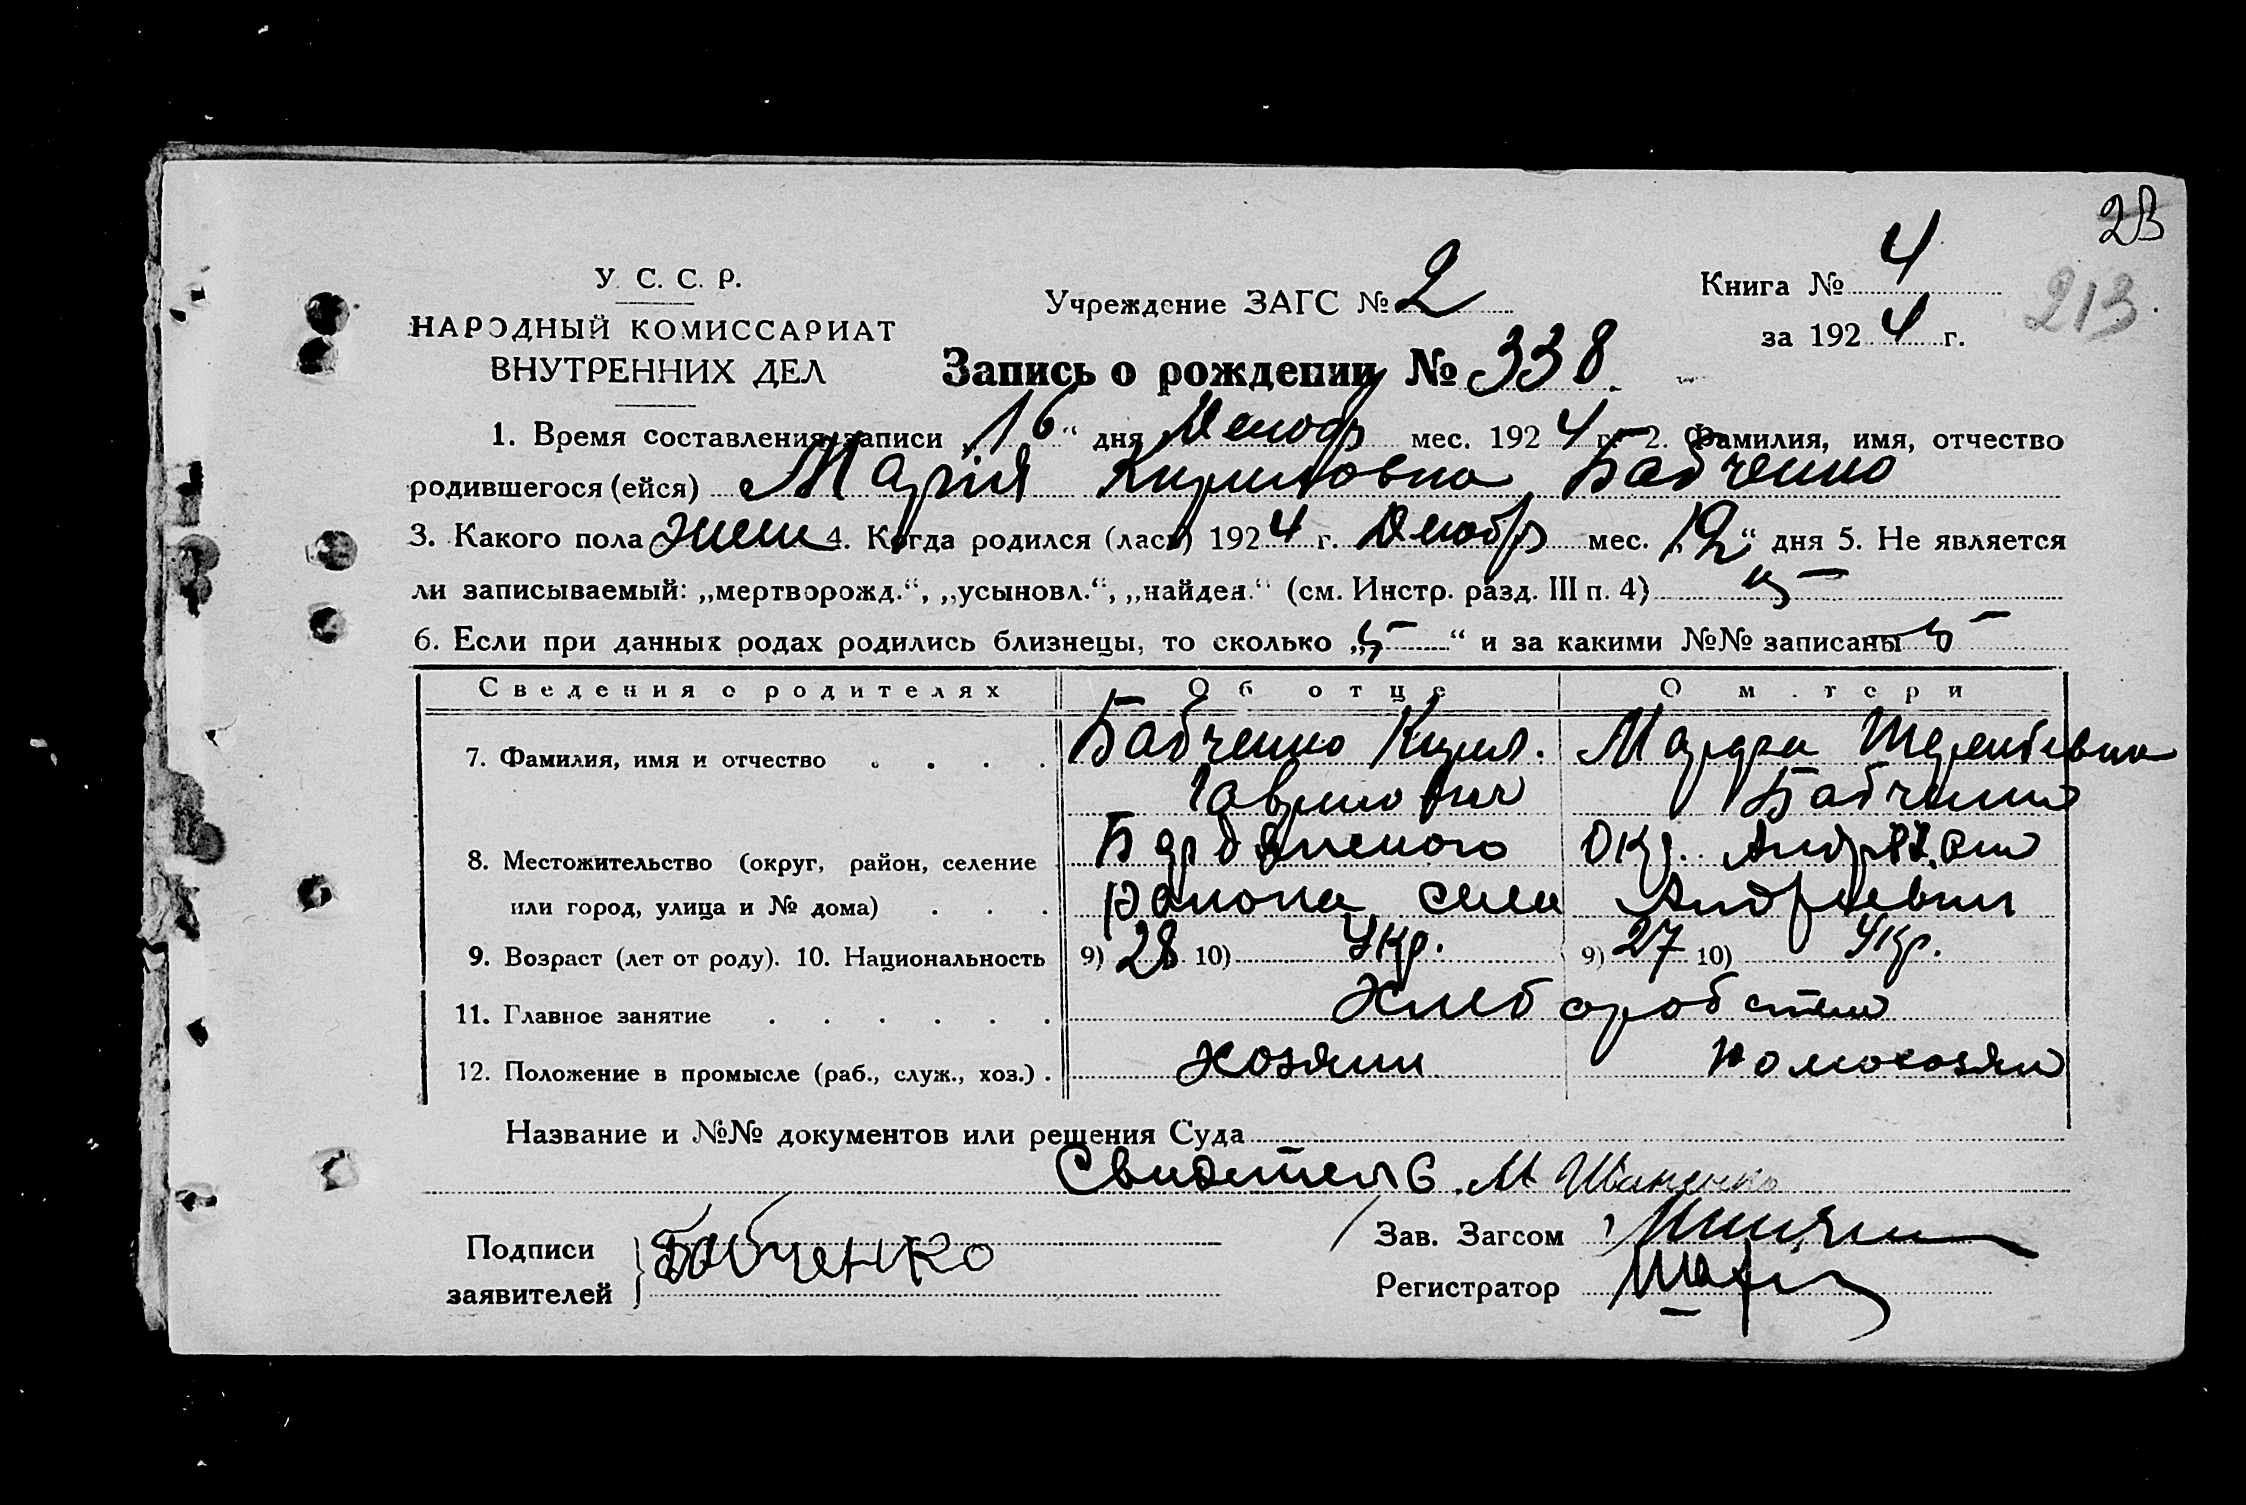 23
213
У. С. С. Р.
НАРОДНЫЙ КОМИССАРИАТ
ВНУТРЕННИХ ДЕЛ
Учреждение ЗАГС № 2
Книга № 4
за 1924 г.
Запись о рождении № 338.
1. Время составления записи „16“ дня Декабр мес. 1924 г. 2. Фамилия, имя, отчество
родившегося (ейся) Марія Кириловна Бабченко
3. Какого пола жен 4. Когда родился (лась) 1924 г. Декабр мес. „12“ дня 5. Не является
ли записываемый: „мертворожд.“, „усыновл.“, „найден.“ (см. Инстр. разд. III п. 4)
6. Если при данных родах родились близнецы, то сколько „ “ и за какими №№ записаны
Сведения о родителях Об отце О матери
7. Фамилия, имя и отчество Бабченко Кирил. Марфа Терентевна
Гаврилович Бабченко
8. Местожительство (округ, район, селение Бердянского Окр. Андр
или город, улица и № дома) района села Андреевки
9. Возраст (лет от роду). 10. Национальность 9) 28 10) Укр. 9) 27 10) Укр.
11. Главное занятие Хлеборобство
12. Положение в промысле (раб., служ., хоз.) хозяин домохозяй
Название и №№ документов или решения Суда
Свидетель М Иваненко
Подписи
заявителей Бабченко
Зав. Загсом
Регистратор